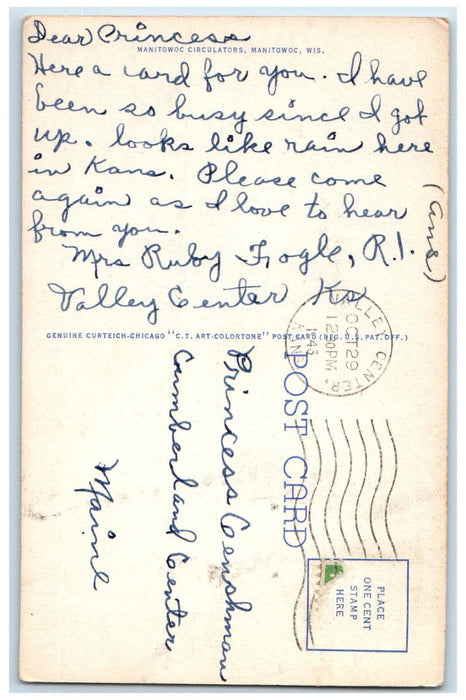 Dear Princess
MANITOWOC CIRCULATORS, MANITOWOC, WIS.
Here a card for you. I have
been so busy since I got
up. looks like rain here
in Kans. Please come
again as I love to hear
from you.
(ans)
Mrs Ruby Fogle, R.1.
Valley Center Ks
GENUINE CURTEICH-CHICAGO "C.T. ART-COLORTONE" POST CARD (REG. U.S. PAT. OFF.)
VALLEY CENTER,
OCT 29
12 30 PM
1946
KANS.
POST CARD
PLACE
ONE CENT
STAMP
HERE
Princess
Cumberland Center
Maine